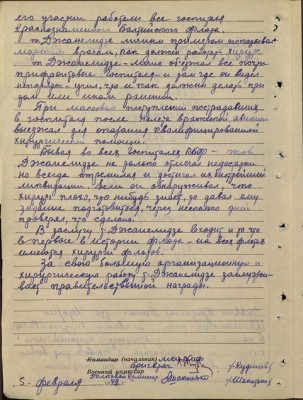 его участии работали все госпиталя
Краснознаменного Балтийского флота.
т. Джанелидзе личным примером показывал
морским врачам, как должен работать хирург.
т. Джанелидзе – лично объезжал все
прифронтовые госпиталя и там где он видел
непорядки учил, что и как должны делать при
том или ином ранении.
При массовом поступлении пострадавших
в госпиталя после налета вражеской авиации
выезжал для оказания квалифицированной
хирургической помощи.
Бывая во всех госпиталях КБФ – тов.
Джанелидзе не только отмечал недостатки
но всегда стремился и достигал их быстрейшей
ликвидации. Если он обнаруживал, что
хирург плохо, что нибудь знает, то давал ему
задание подготовиться, через несколько дней
проверял, что сделано.
В заслугу т. Джанелидзе входит и то что
впервые в истории флота – на всех флотах
имеются хирурги флотов.
За свою большую организационную и
хирургическую работу т. Джанелидзе заслужи-
вает правительственной награды.
Командир (начальник)
Бригврач
Военный комиссар
5 февраля